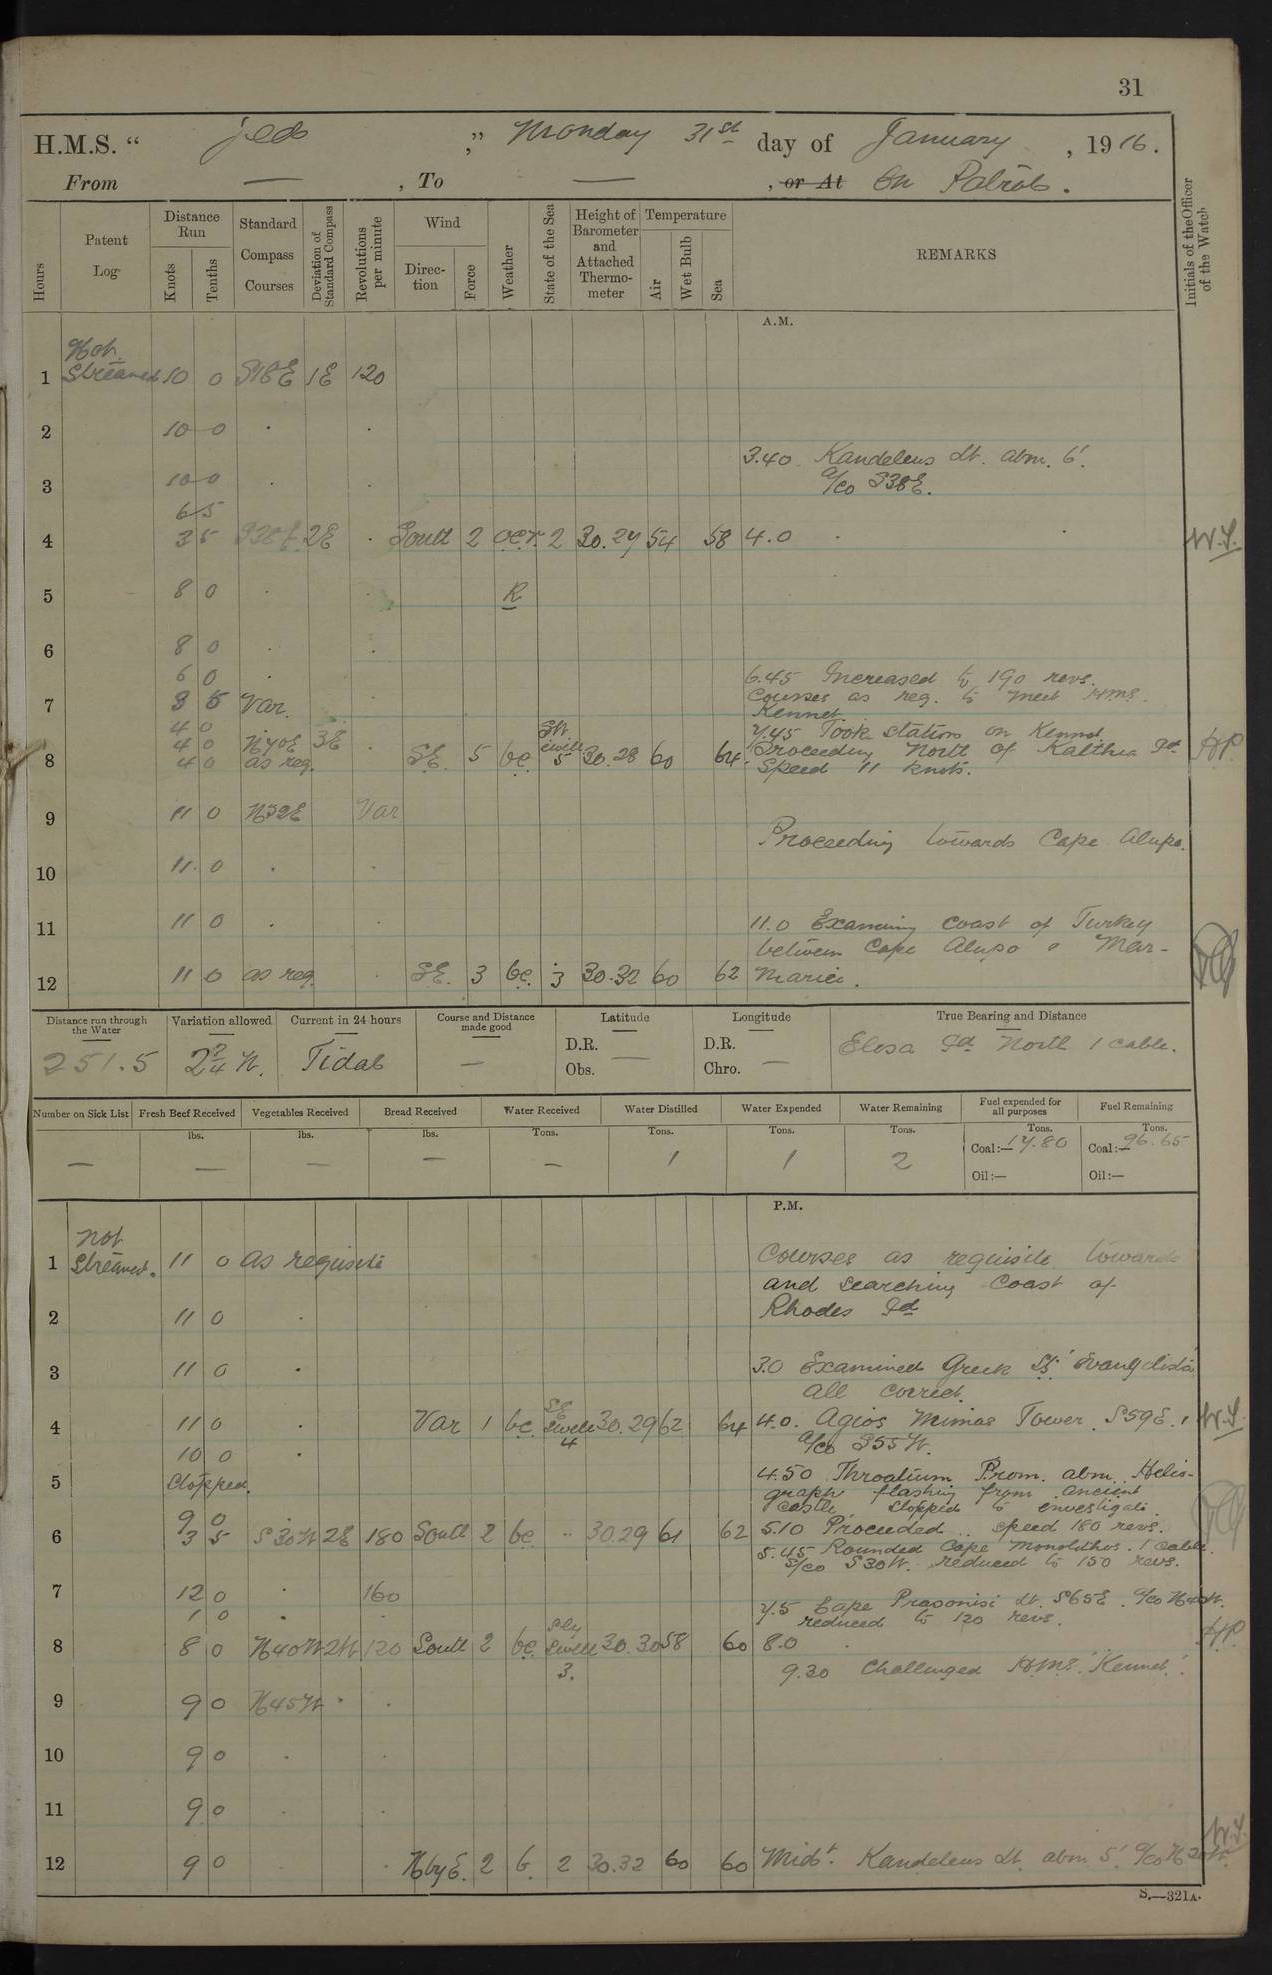 31
H.M.S. “ Jed ” Monday 31st day of January , 19 16 .
From — , To — , or At On Patrol .
Hours Patent Log Distance Run Knots Tenths Standard Compass Courses Deviation of Standard Compass Revolutions per minute Wind Direction Force Weather State of the Sea Height of Barometer and Attached Thermometer Temperature Air Wet Bulb Sea REMARKS Initials of the Officer of the Watch
A.M.
Not
1 Streamed 10 0 S18E 1E 120
2 10 0 . .
3.40 Kandeleus Lt. abm. 6'.
3 10 0 . . a/co S38E.
6 5
4 3 5 S38E 2E . South 2 ocr. 2 30.27 54 58 4.0 . . W.S.
5 8 0 . . R
6 8 0 . .
6 0 . 6.45 Increased to 190 revs.
7 3 5 Var. Courses as req. to meet HMS.
Kennet
4 0 SW 7.45 Took station on Kennet
4 0 N70E 3E . swell Proceeding North of Kalthea Id.
8 4 0 as req. SE. 5 bc 5 30.28 60 64 Speed 11 knots. HP.
9 11 0 N32E Var
Proceeding towards Cape Alupo.
10 11 0 . .
11 11 0 . . 11.0 Examining coast of Turkey
between Cape Alupo & Mar-
12 11 0 as req. . SE. 3 bc. 3 30.32 60 62 marici.
Distance run through the Water Variation allowed Current in 24 hours Course and Distance made good Latitude Longitude True Bearing and Distance
251.5 2¾ W. Tidal — D.R. — Obs. D.R. — Chro. Elosa Id North 1 cable.
Number on Sick List Fresh Beef Received Vegetables Received Bread Received Water Received Water Distilled Water Expended Water Remaining Fuel expended for all purposes Fuel Remaining
lbs. lbs. lbs. Tons. Tons. Tons. Tons. Tons. Tons.
— — — — — 1 1 2 Coal:— 17.80 Coal:— 96.65
Oil:— Oil:—
P.M.
Not
1 Streamed. 11 0 as requisite Courses as requisite towards
and searching coast of
2 11 0 . Rhodes Id
3 11 0 . 3.0 Examined Greek SS 'Evangelistria'
all correct.
SE
4 11 0 . Var 1 bc. swell 30.29 62 64 4.0. Agios Mimas Tower. S59E. 1' W.S.
4 a/co S55W.
10 0 .
5 Stopped. 4.50 Throatium Prom. abm. Helio-
graph flashing from ancient
castle. Stopped to envestigate.
9 0
6 3 5 S30W 2E 180 South 2 bc .. 30.29 61 62 5.10 Proceeded .. speed 180 revs.
5.45 Rounded Cape Monolithos. 1 cable.
S/co S30W. reduced to 150 revs.
7 12 0 . 160
1 0 . 7.5 Cape Prasonisi Lt. S65E. a/co N40W.
Sly reduced to 120 revs.
8 8 0 N40W 2W 120 South 2 bc. swell 30.30 58 60 8.0 . HP.
3. 9.30 Challenged HMS 'Kennet'.
9 9 0 N45W . .
10 9 0 . .
11 9 0 . .
12 9 0 . NbyE. 2 b. 2 30.32 60 60 Midt. Kandeleus Lt. abm 5' a/co N20W. W.S.
S.—321A.